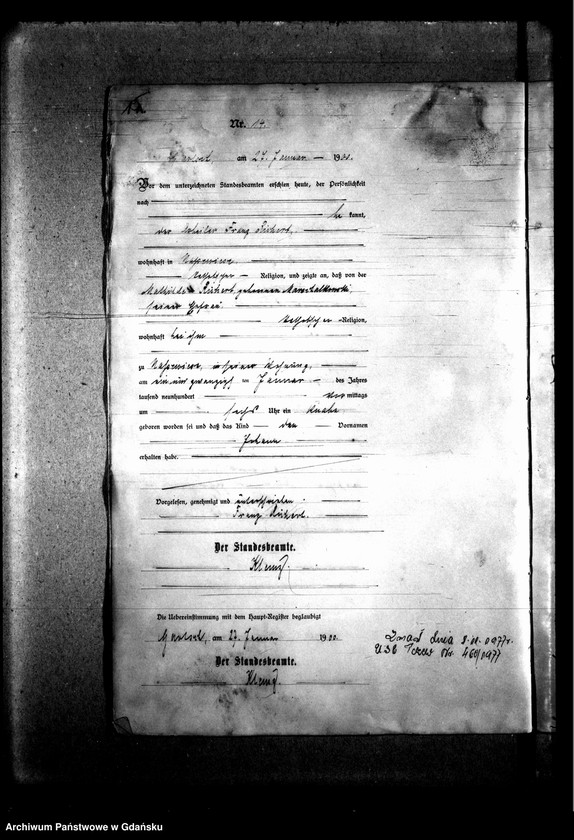 Nr. 14.
am 27. Januar 19
Vor dem unterzeichneten Standesbeamten erschien heute, der Persönlichkeit
nach
be kannt,
der Arbeiter Franz Rickert,
wohnhaft in
Religion, und zeigte an, daß von der
Mathilde Rickert, geborenen
seiner Ehefrau
katholischer Religion,
wohnhaft bei ihm
zu in seiner Wohnung,
am ein und zwanzig ten Januar des Jahres
tausend neunhundert mittags
um sechs Uhr ein Knabe
geboren worden sei und daß das Kind den Vornamen
Johann
erhalten habe.
Vorgelesen, genehmigt und unterschrieben.
Franz Rickert.
Der Standesbeamte.
Die Uebereinstimmung mit dem Haupt-Register beglaubigt
am 27. Januar 1900.
Der Standesbeamte.
Zmarł dnia 1977r.
USC Tczew Nr. 460/1977
Archiwum Państwowe w Gdańsku